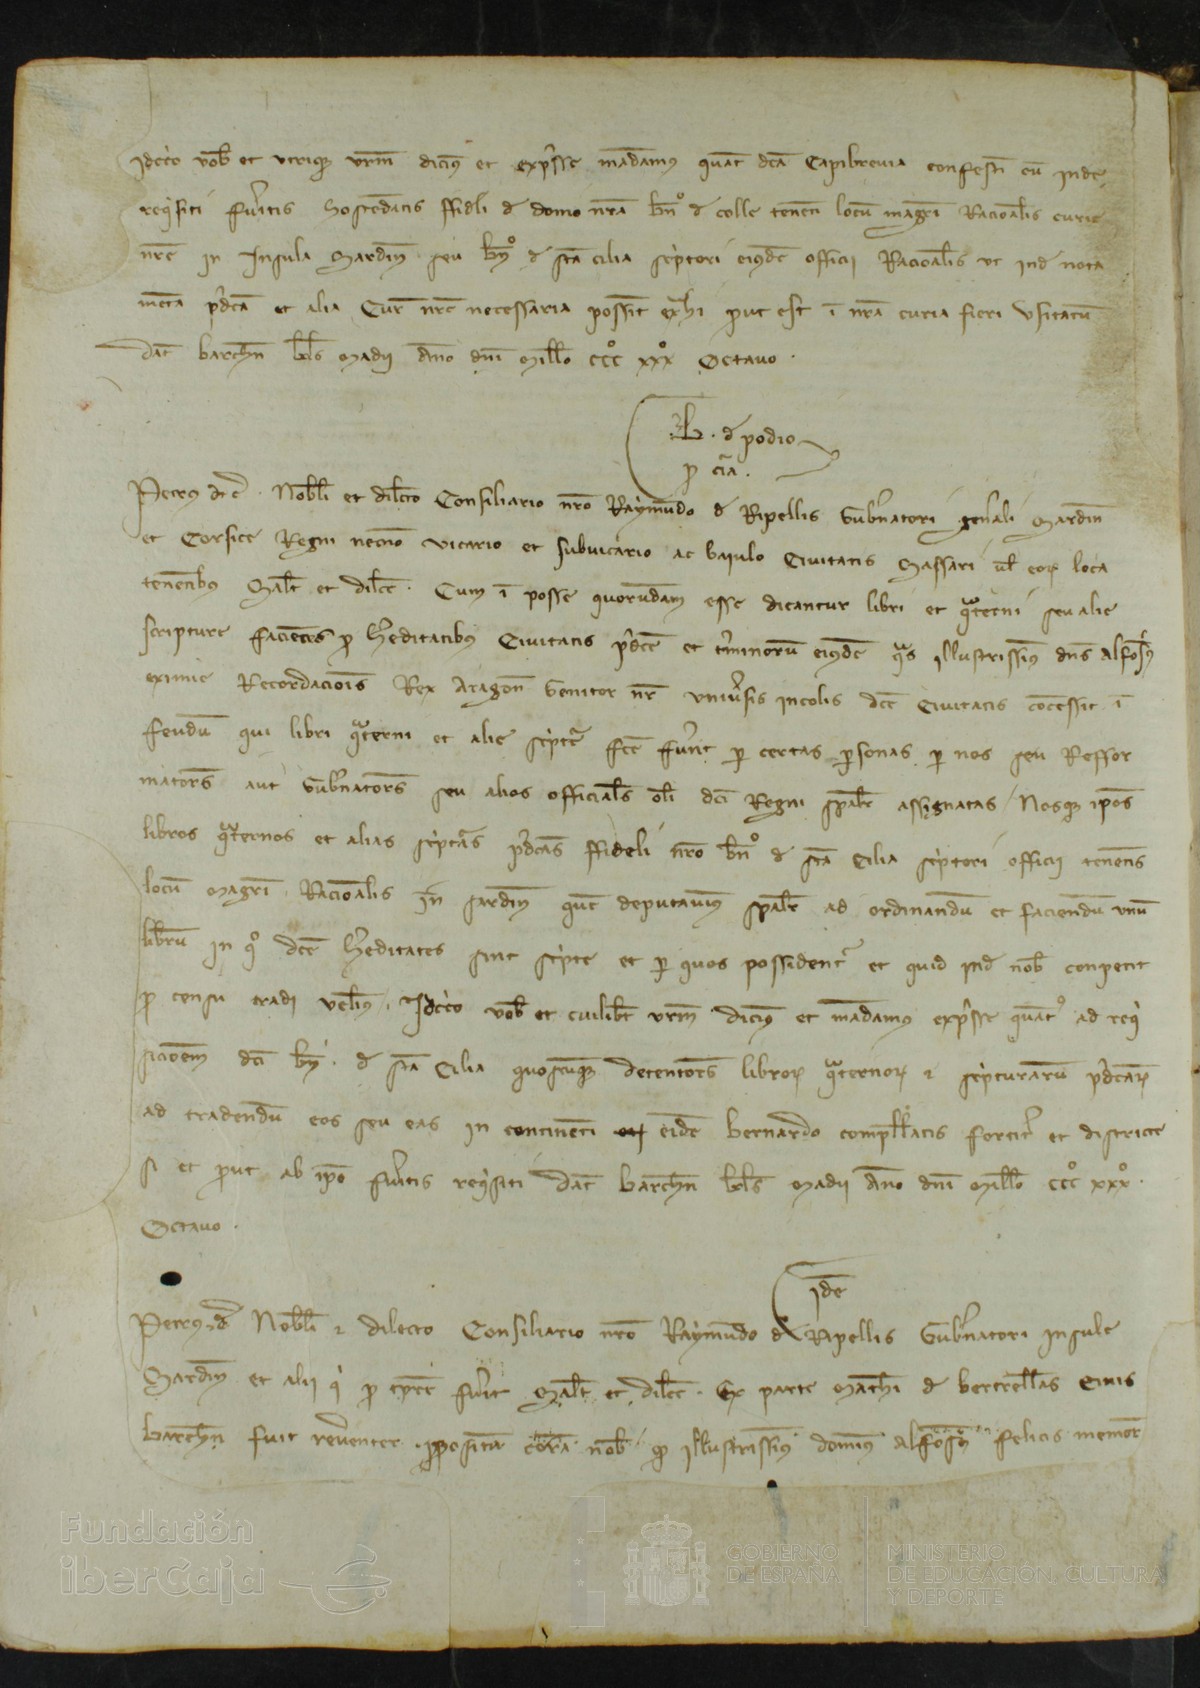 Idcco vob et utriq vrm dicim et exprsse madamus quat dca Capibrevia confestī cū inde
reqisiti furitis hostedatis ffidli d domo nra bnº d colle tenen locū magri Racioalis curie
nre in Insula Sardin seu bnº d sta cilia scptori eiusde officii Racioalis ut ind nota
menta pdca et alia Cur nre necessaria possit exhi put est ī nra curia fieri usitatū
dat barchn kls madii ano dni Millo cccº xxxº octavo .
. d podio
p cia .
Petrus etc . Nobli et dilcto Consiliario nro Raymundo d Ripellis Gubnatori genali Sardin
et Corsice Regni necno vicario et subvicario ac baiulo Civitatis Sassari ul eor loca
tenentibus Salt et dilce . Cum ī posse quorundam esse dicantur libri et qaterni seu alie
scripture facientes p heditatibus Civitatis pdce et tminorū eiusde qas illustrissius dns Alfosus
eximie Recordaciois Rex Aragon Genitor nr univsis incolis dce Civitatis cocessit ī
feudū qui libri qaterni et alie scptᵉ fce furit p certas psonas p nos seu Reffor
matores aut Gubnatores seu alios officiales oli dci Regni spalr assignatas / Nosq ipos
libros qaternos et alias scptas pdcas ffideli nro bnº d sta Cilia scptori officii tenetis
locū Magri Racioalis in sardin qut deputavim spalr ad ordinandū et faciendū unū
librū in qº dce heditates sint scpte et p quos possident et quid ind nob conpetit
p censu tradi velim . Idcco vob et cuilibt vrm dicim et madamus exprsse quat ad reqi
sicioem dci bn . d sta Cilia quoscuq detentores libror qaternor et scpturarū pdcar
ad tradendū eos seu eas in continenti eide bernardo compllatis fortit et districte
si et put ab ipo furitis reqisiti dat barchn kls madii ano dni Millo cccº xxxº .
Octavo .
Ide
Petrus etc Nobli et dilecto Consiliario nro Raymundo d Ripellis Gubnatori Insule
Sardin et alii qi p tpre furit Salt et dilce . Ex parte Mathi d bertrellas Civis
barchn fuit reventer ppositū cora nob q illustrissius domin Alfosus felicis memor
Fundación
iberCaja
GOBIERNO
DE ESPAÑA
MINISTERIO
DE EDUCACIÓN, CULTURA
Y DEPORTE